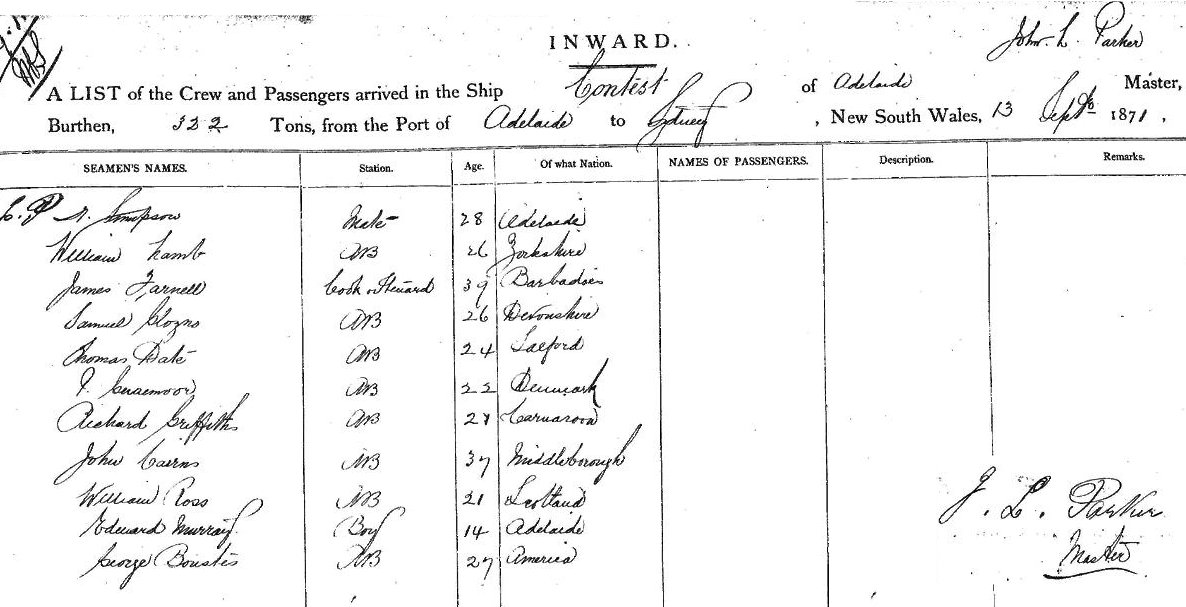 INWARD.
John. L. Parker
A LIST of the Crew and Passengers arrived in the Ship Contest of Adelaide Master,
Burthen, 322 Tons, from the Port of Adelaide to Sydney, New South Wales, 13 Septb 1871,
SEAMEN'S NAMES. Station. Age. Of what Nation. NAMES OF PASSENGERS. Description. Remarks.
Simpson Mate 28 Adelaide
William Lamb AB 26 Yorkshire
James Farnell Cook & Steward 39 Barbadoes
Samuel AB 26 Devonshire
Thomas Date AB 24 Salford
AB 22 Denmark
Richard Griffiths AB 21 Carnarvon
John Cairns AB 37 Middleborough
William Ross AB 21 Scotland
Edward Murray Boy 14 Adelaide
George AB 27 America
J. L. Parker
Master